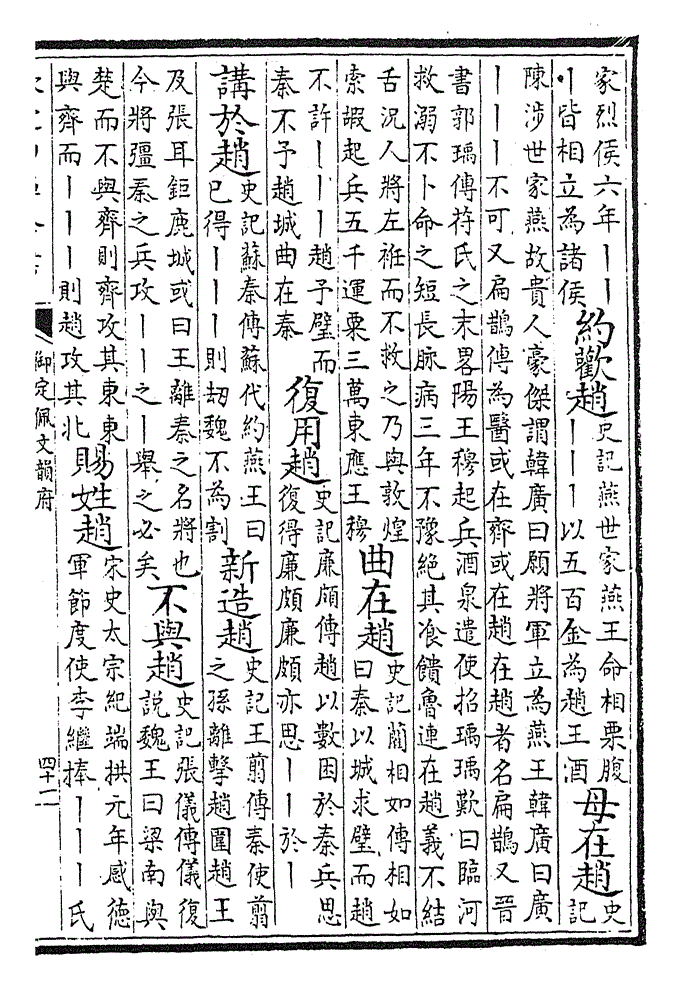 家烈侯六年丨丨
丨皆相立為諸侯
約歡趙
史記燕世家燕王命相栗腹
丨丨丨以五百金為趙王酒
母在趙
史
記
陳涉世家燕故貴人豪傑謂韓廣曰願將軍立為燕王韓廣曰廣
丨丨丨不可又扁鵲傳為醫或在齊或在趙在趙者名扁鵲又晉
書郭瑀傳苻氏之末畧陽王穆起兵酒泉遣使招瑀瑀歎曰臨河
救溺不卜命之短長脉病三年不豫絕其飡饋魯連在趙義不結
舌況人將左袵而不救之乃與敦煌
索嘏起兵五千運粟三萬東應王穆
曲在趙
史記藺相如傳相如
曰秦以城求璧而趙
不許丨丨丨趙予璧而
秦不予趙城曲在秦
復用趙
史記廉頗傳趙以數困於秦兵思
復得廉頗廉頗亦思丨丨於丨
講於趙
史記蘇秦傳蘇代約燕王曰
已得丨丨丨則刼魏不為割
新造趙
史記王翦傳秦使翦
之孫離擊趙圍趙王
及張耳鉅鹿城或曰王離秦之名將也
今將彊秦之兵攻丨丨之丨舉之必矣
不與趙
史記張儀傳儀復
說魏王曰梁南與
楚而不與齊則齊攻其東東
與齊而丨丨丨則趙攻其北
賜姓趙
宋史太宗紀端拱元年感德
軍節度使李繼捧丨丨丨氏
御定佩文韻府
四十二